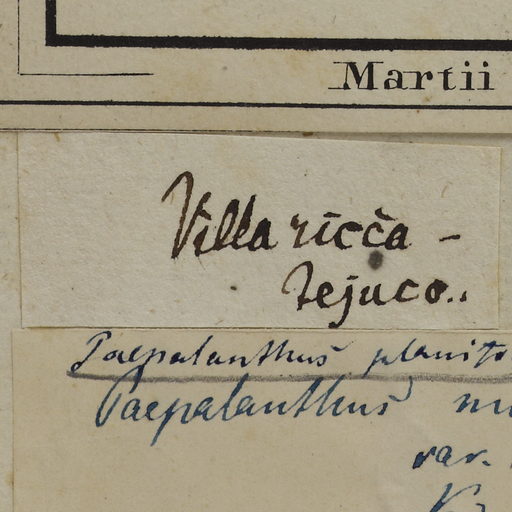 Martii
Villa ricca -
Tejuco..
Paepalanthus
Paepalanthus
var.